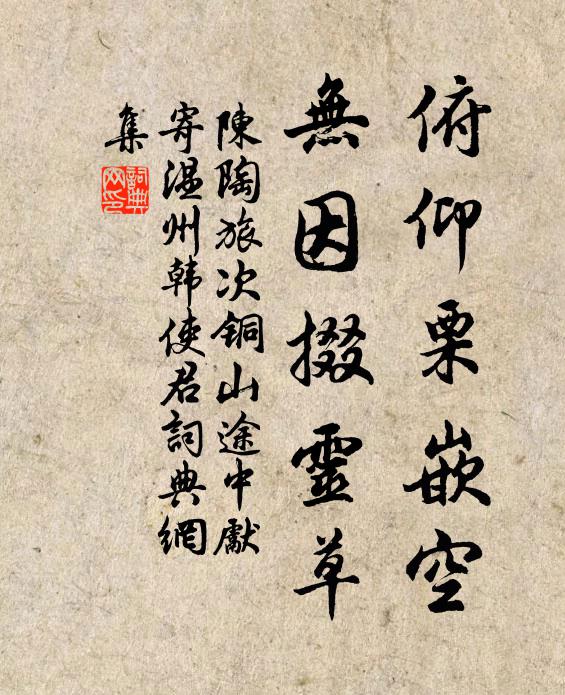 俯仰栗嵌空
無因掇靈草
陳陶旅次铜山途中獻
寄温州韩使君詞典網
集
詞典网印